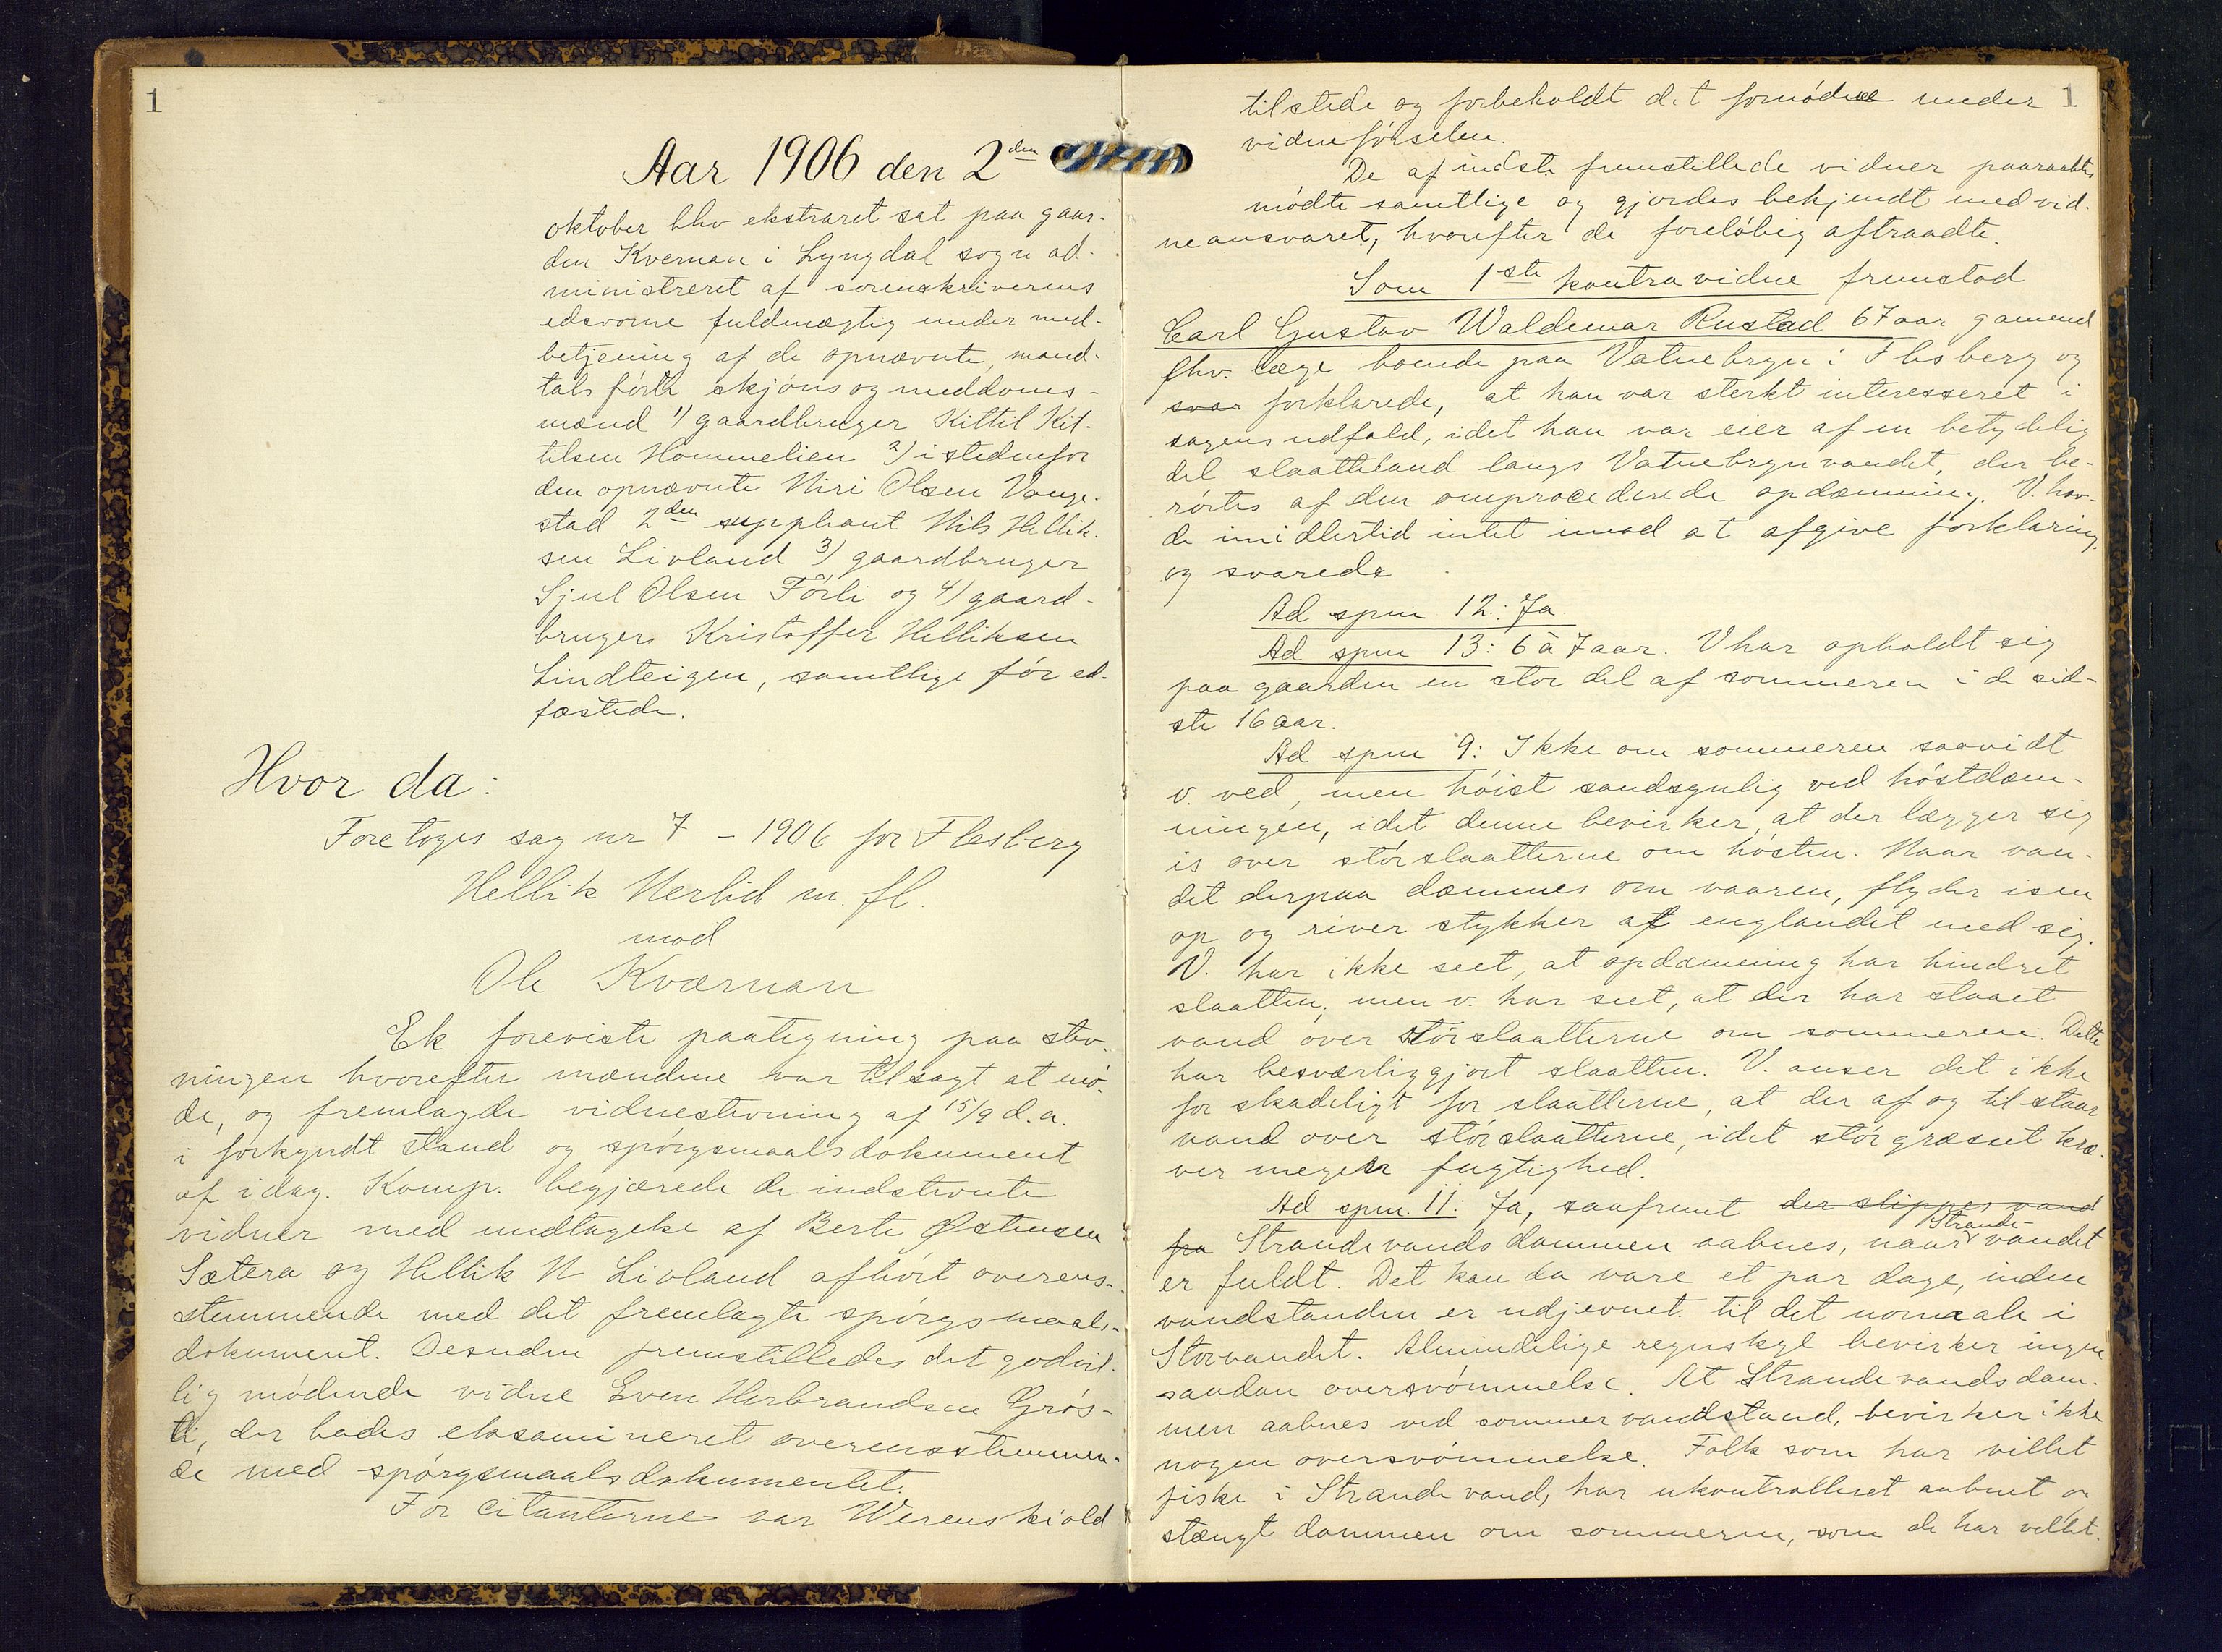 1
Aar 1906 den 2den
oktober blev ekstraret sat paa gaar-
den Kvernan i Lyngdal sogn ad-
ministreret af sorenskriverens
edsvorne fuldmægtig under med-
betjening af de opnævnte, mand-
tals førte skjøns og meddoms-
mænd 1) gaardbruger Kittil Kit-
tilsen Hommelien 2) istedenfor
den opnævnte Niri Olsen Vange-
stad 2den suppleant Nils Hellik-
sen Livland 3) gaardbruger
Sjul Olsen Førli og 4) gaard-
bruger Kristoffer Helliksen
Lindteigen, samtlige før ed-
fæstede.
Hvor da:
Foretoges sag nr 7 - 1906 for Flesberg
Hellik Nerlid m. fl.
mod
Ole Kværnan
Ek foreviste paategning paa stev-
ningen hvorefter mændene var tilsagt at mø-
de, og fremlagde vidnestevning af 15/9 d.a.
i forkyndt stand og spørgsmaalsdokument
af idag. Komp. begjærede de indstevnte
vidner med undtagelse af Berte Østensen
Sætera og Hellik N Livland afhørt overens-
stemmende med det fremlagte spørgsmaals-
dokument. Desuden fremstilledes det godvil-
lig mødende vidne Even Herbrandsen Grøs-
li, der bades eksamineret overensstemmen-
de med spørgsmaalsdokumentet.
For citanterne var Werenskiold
1
tilstede og forbeholdt det fornødne under
vidneførselen.
De af indst. fremstillede vidner paaraabtes
mødte samtlige og gjordes bekjendt med vid-
neansvaret, hvorefter de foreløbig aftraadte.
Som 1ste kontravidne fremstod
Carl Gustav Waldemar Rustad 67 aar gammel
fhv. læge boende paa Vatnebryn i Flesberg og
svar forklarede, at han var sterkt interesseret i
sagens udfald, idet han var eier af en betydelig
del slaatteland langs Vatnebrynvandet, der be-
rørtes af den omprocederede opdæmning. V. hav-
de imidlertid intet imod at afgive forklaring,
og svarede
Ad spm 12: Ja
Ad spm 13: 6 à 7 aar. V har opholdt sig
paa gaarden en stor del af sommeren i de sid-
ste 16 aar.
Ad spm 9: Ikke om sommeren saavidt
v. ved, men høist sandsynlig ved høstdæm-
ningen, idet denne bevirker, at der lægger sig
is over størslaatterne om høsten. Naar van-
det derpaa dæmmes om vaaren, flyder isen
op og river stykker af englandet med sig.
V. har ikke seet, at opdæmning har hindret
slaatten, men v. har seet, at der har staaet
vand over størslaatterne om sommeren. Dette
har besværliggjort slaatten. V. anser det ikke
for skadeligt for slaatterne, at der af og til staar
vand over størslaatterne, idet størgræsset kræ-
ver megen fugtighed.
Ad spm. 11: Ja, saafremt der slippes vand
fra Strandevandsdammen aabnes, naar Strande-vandet
er fuldt. Det kan da vare et par dage, inden
vandstanden er udjevnet til det normale i
Storvandet. Almindelige regnskyl bevirker ingen
saadan oversvømmelse. At Strandevandsdam-
men aabnes ved sommervandstand, bevirker ikke
nogen oversvømmelse. Folk som har villet
fiske i Strandevand, har ukontrolleret aabnet og
stængt dammen om sommeren, som de har villet.